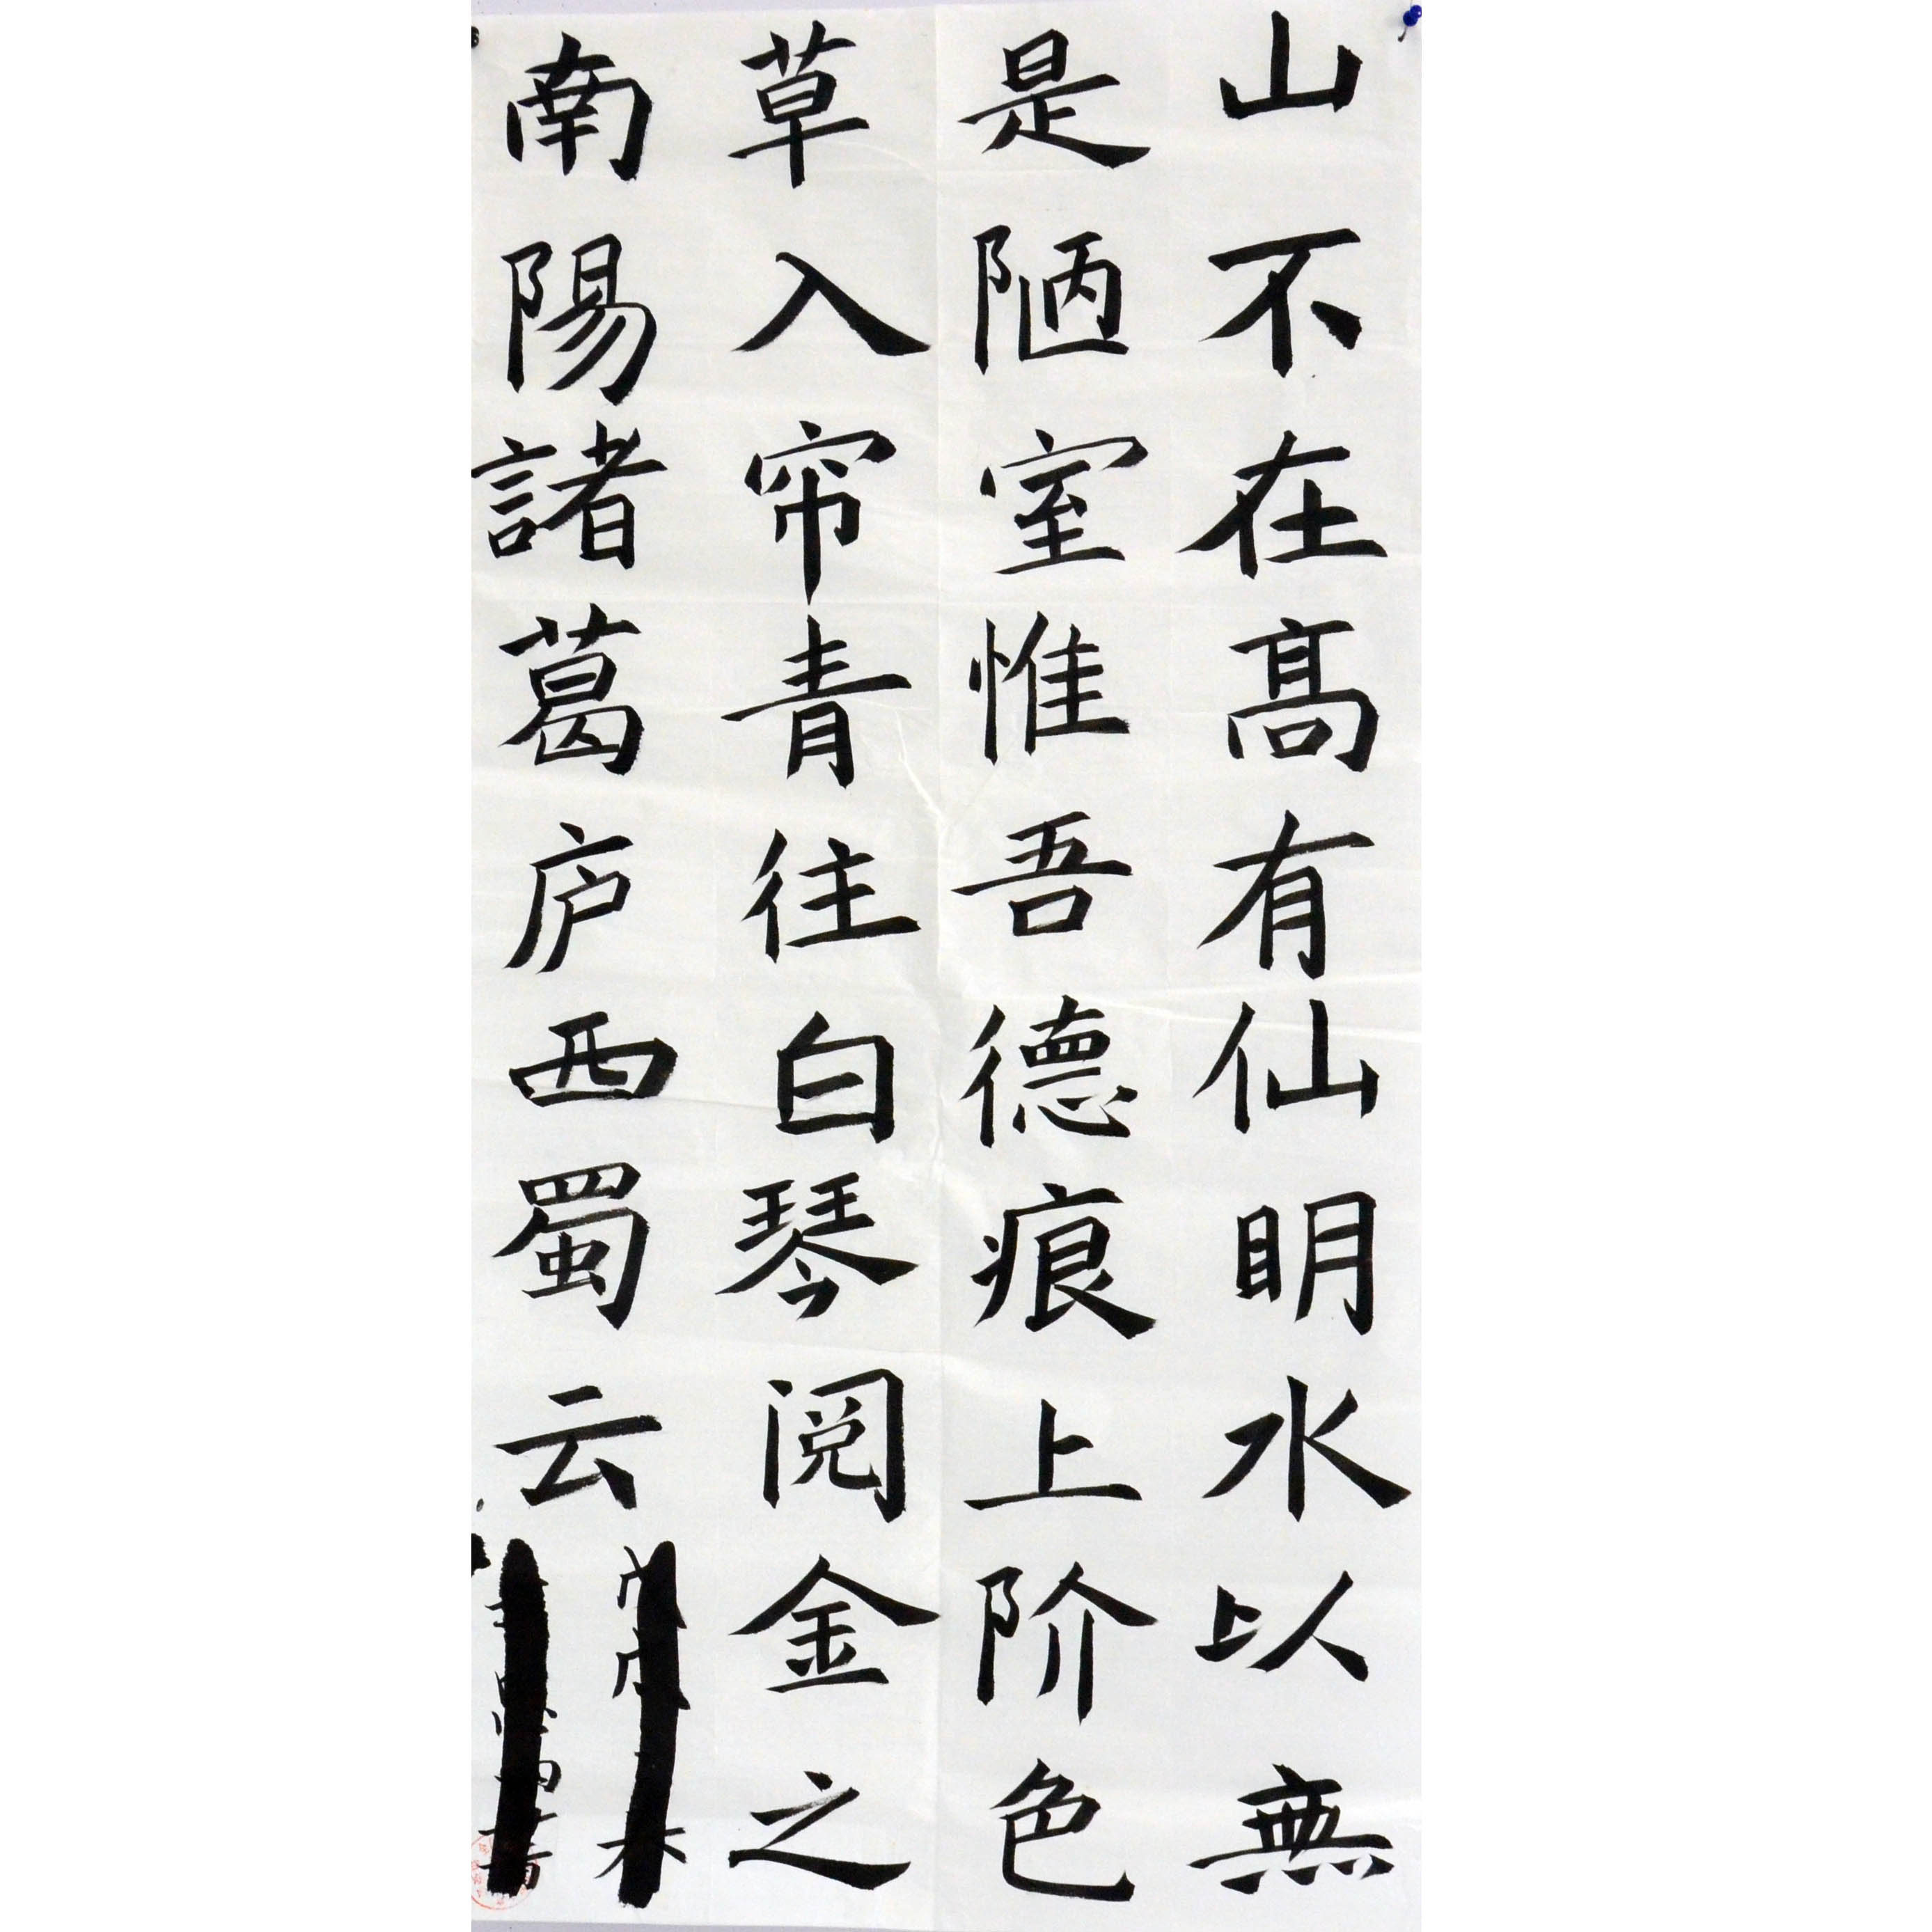 山不在高有仙明水以無
是陋室惟吾德痕上阶色
草入帘青往白琴阅金之
南陽諸葛庐西蜀云